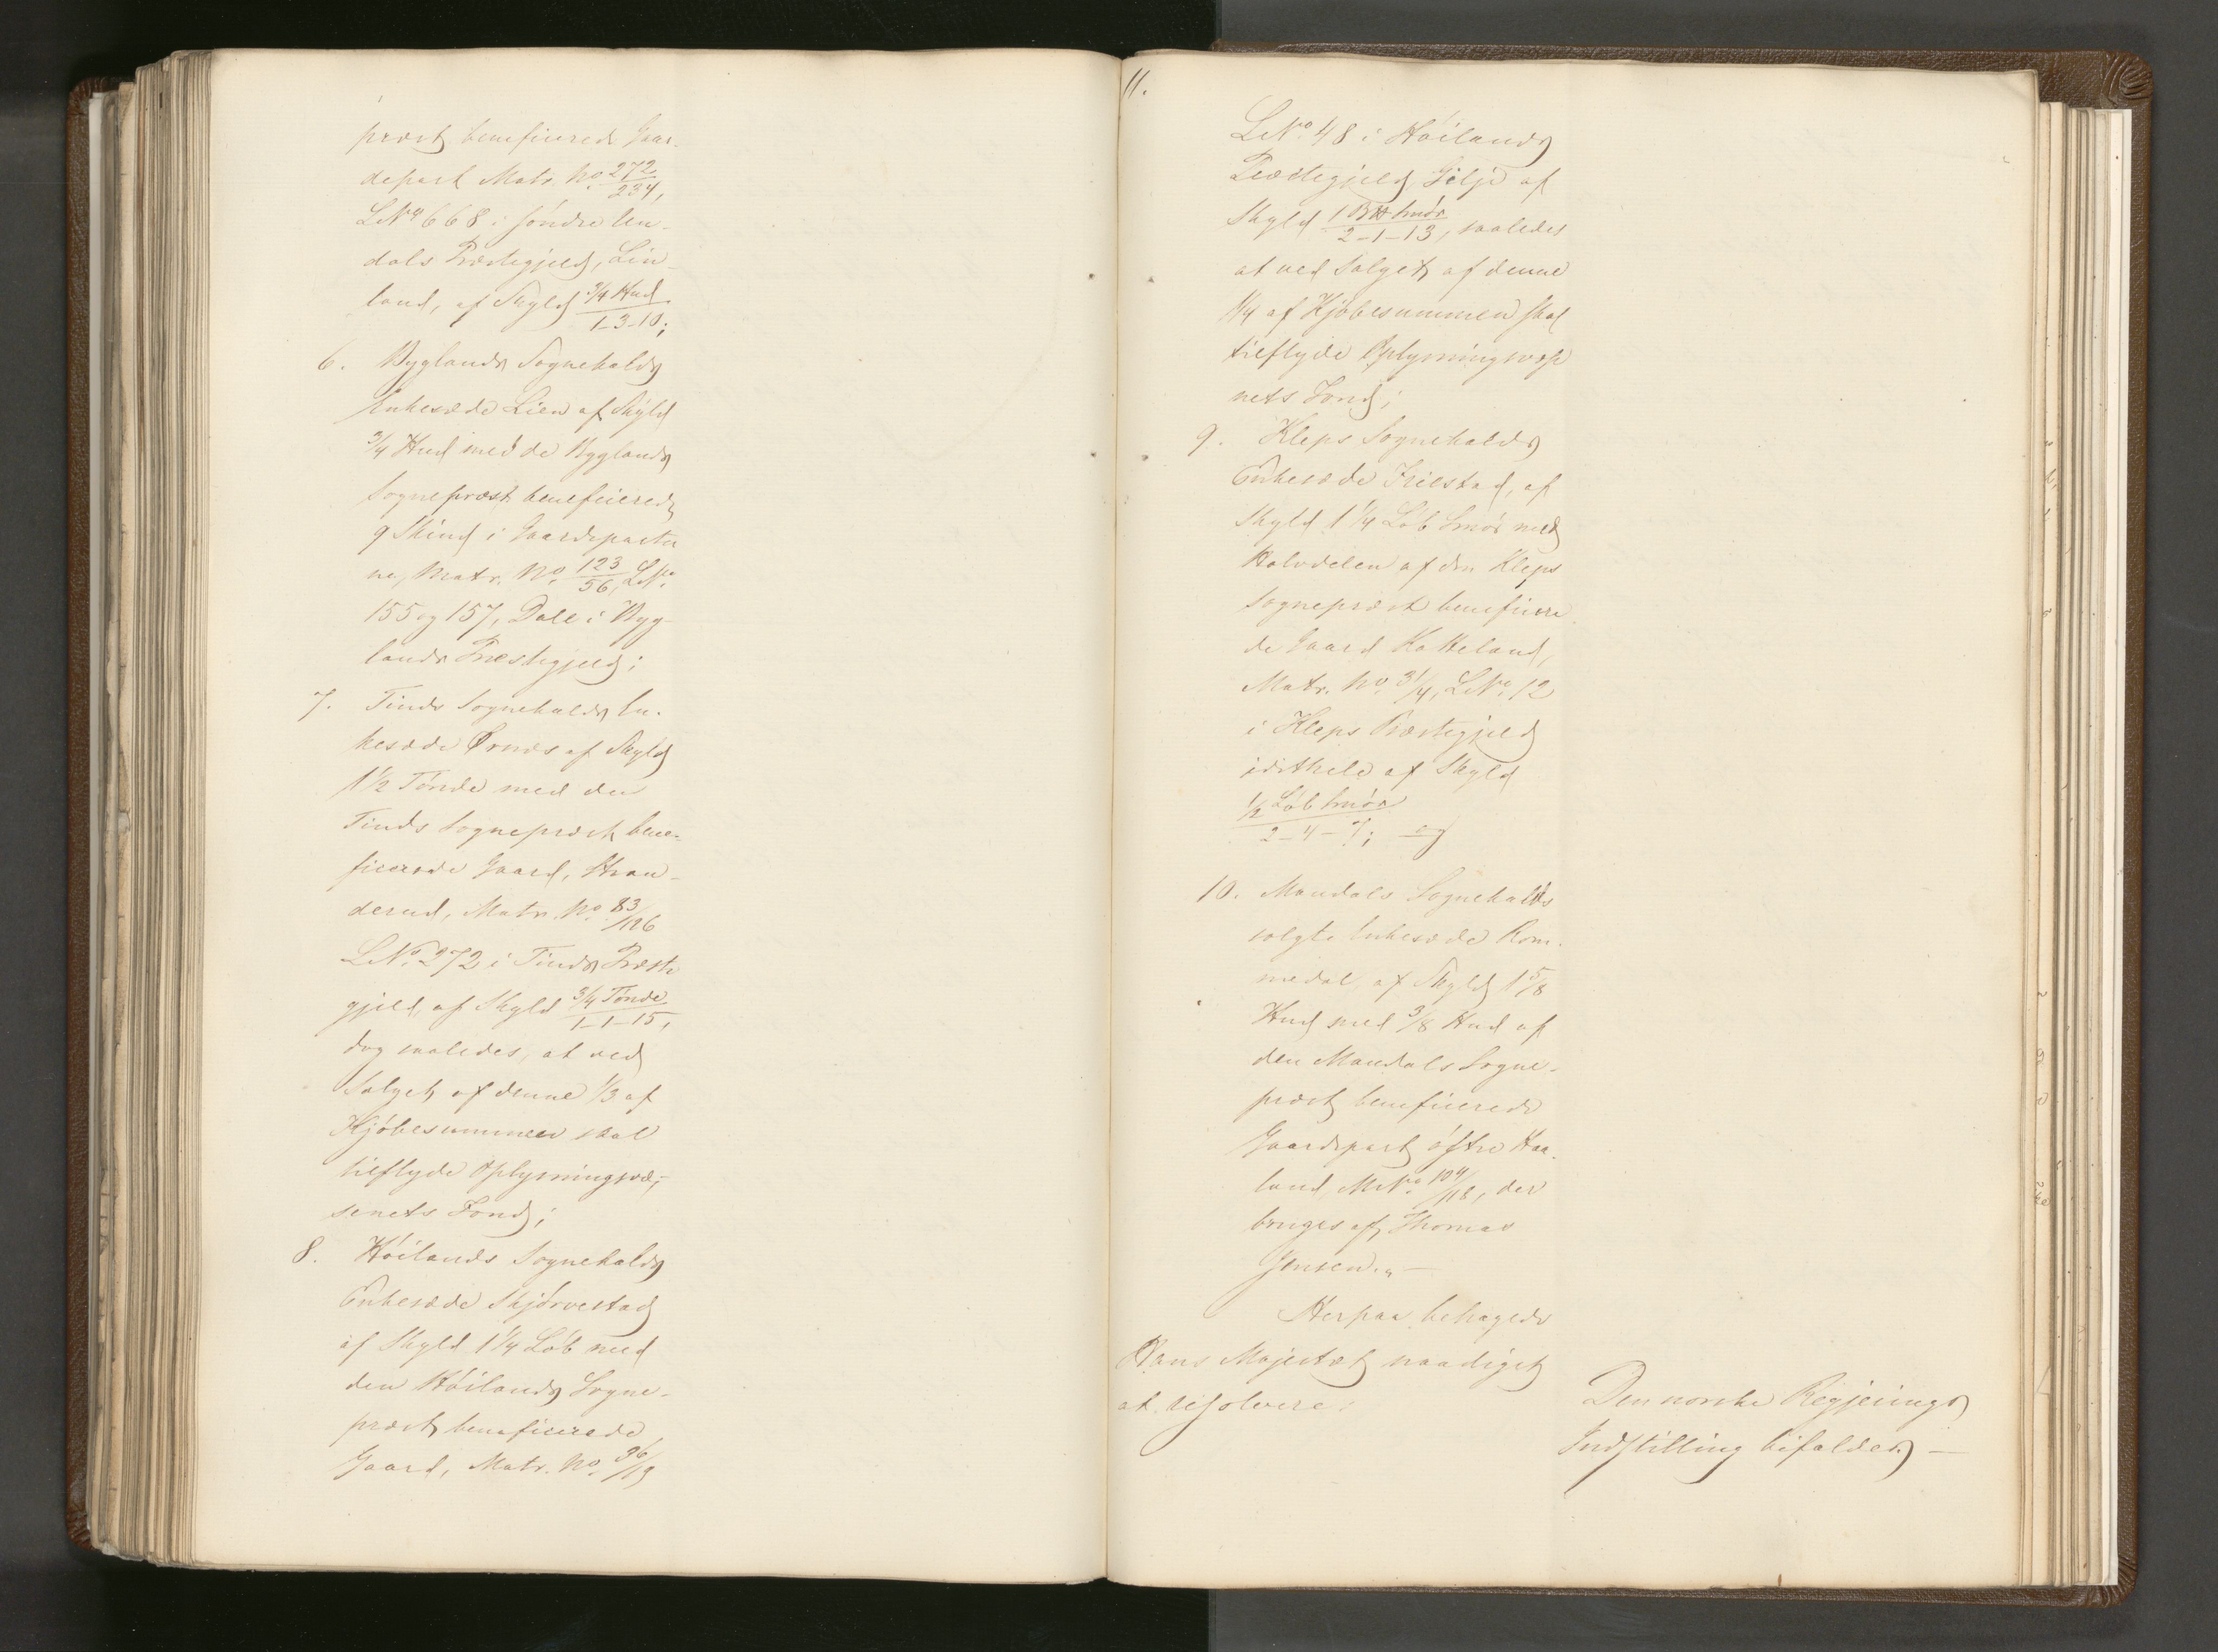 præst beneficerede Gaar-
depart Matr. No 272/234,
LNo 668 i søndre Un-
dals Præstegjeld, Lin-
land, af Skyld 3/4 Hud/1-3-10;
6. Byglands Sognekalds
Enkesæde Lien af Skyld
3/4 Hud med de Byglands
Sognepræst beneficerede
9 Skind i Gaardeparter
ne, Matr. No 123/56, LNo
155 og 157, Dale i Byg-
lands Præstegjeld;
7. Tinds Sognekalds En-
kesæde Ørnes af Skyld
1 1/2 Tønde med den
Tinds Sognepræst bene-
ficerede Gaard, Stran-
derud, Matr. No 83/116
LNo 272 i Tinds Præste
gjeld, af Skyld 3/4 Tønde/1-1-15,
dog saaledes, at ved
Salget af denne 1/3 af
Kjøbesummen skal
tilflyde Oplysningsvæ-
senets Fond;
8. Höilands Sognekalds
Enkesæde Skjørvestad
af Skyld 1 1/4 Løb med
den Höilands Sogne-
præst beneficerede
Gaard, Matr. No 36/19
11.
LNo 48 i Höilands
Præstegjeld Gilje af
Skyld 1 B℔ Smör/2-1-13, saaledes
at ved Salget af denne
1/4 af Kjøbesummen skal
tilflyde Oplysningsvæse
nets Fond;
9. Kleps Sognekalds
Enkesæde Friestad, af
Skyld 1 1/4 Løb Smör med
Halvdelen af den Kleps
Sognepræst beneficere
de Gaard Hatteland,
Matr. No 31/4, LNo 12
i Kleps Præstegjeld
idethele af Skyld
1/2 Løb Smör/2-4-7; og
10. Mandals Sognekalds
solgte Enkesæde Rom-
medal, af Skyld 1 5/8
Hud med 3/8 Hud af
den Mandals Sogne-
præst beneficerede
Gaardspart østre Haa-
land, MNo 104/118, der
bruges af Thomas
Jensen."—
Herpaa behagede
Hans Majestæt naadigst
at resolvere:
Den norske Regjerings
Indstilling bifaldes. —